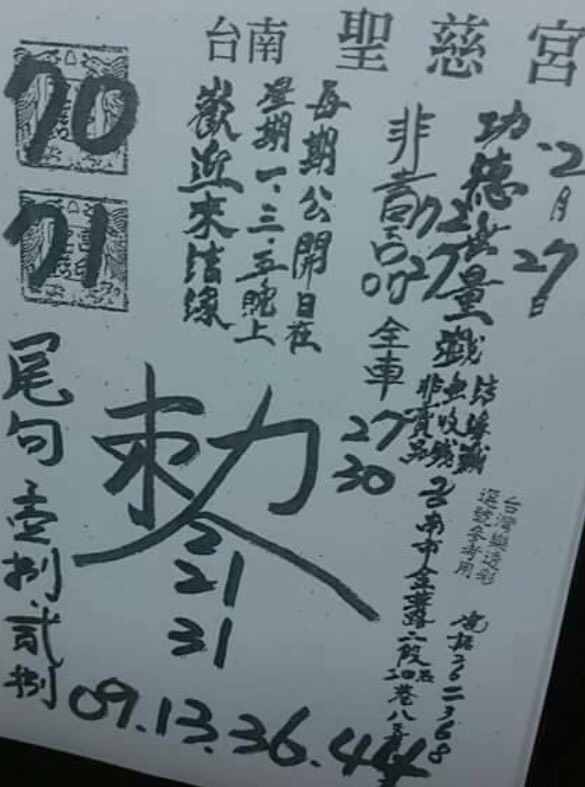 台南 聖慈宮
2月27日
功德無量
非賣品
每期公開日在
星期一.三.五晚上
歡迎來結緣
70
71
全車
27
30
結緣
無收錢
非賣品
台灣樂透彩
選號參考用
台南市金華路二段
敕令
2
21
31
尾句 壹捌.貳捌
09.13.36.44